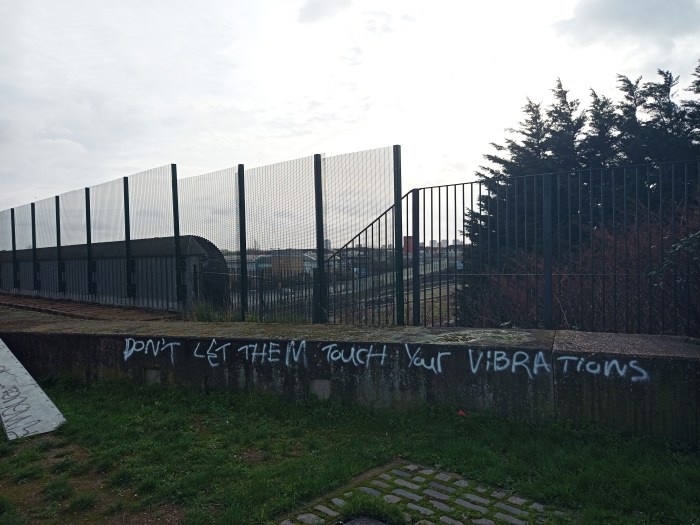 DON'T LET THEM TOUCH YOUR VIBRATIONS